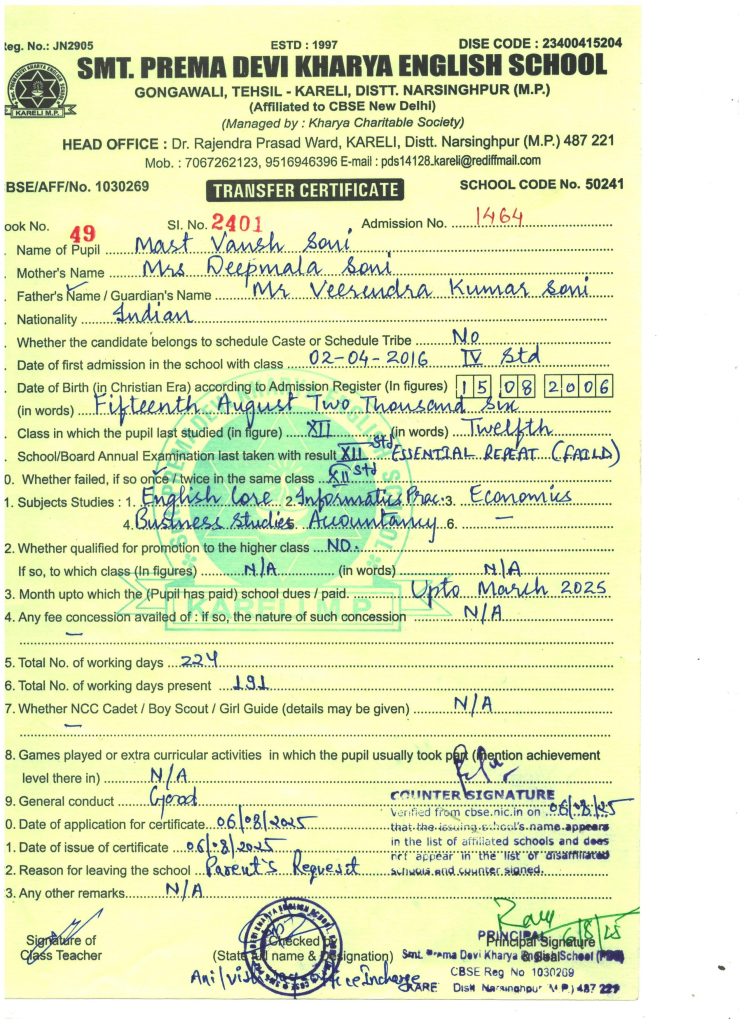 Reg. No.: JN2905 ESTD : 1997 DISE CODE : 23400415204
SMT. PREMA DEVI KHARYA ENGLISH SCHOOL
KARELI M.P.
GONGAWALI, TEHSIL - KARELI, DISTT. NARSINGHPUR (M.P.)
(Affiliated to CBSE New Delhi)
(Managed by : Kharya Charitable Society)
HEAD OFFICE : Dr. Rajendra Prasad Ward, KARELI, Distt. Narsinghpur (M.P.) 487 221
Mob. : 7067262123, 9516946396 E-mail : pds14128.kareli@rediffmail.com
CBSE/AFF/No. 1030269 TRANSFER CERTIFICATE SCHOOL CODE No. 50241
ook No. 49 Sl. No. 2401 Admission No. 1464
. Name of Pupil Mast Vansh Soni
. Mother's Name Mrs Deepmala Soni
. Father's Name / Guardian's Name Mr Veerendra Kumar Soni
. Nationality Indian
. Whether the candidate belongs to schedule Caste or Schedule Tribe No
. Date of first admission in the school with class 02-04-2016 IV Std
. Date of Birth (in Christian Era) according to Admission Register (In figures) 15 08 2006
(in words) Fifteenth August Two Thousand Six
. Class in which the pupil last studied (in figure) XII (in words) Twelfth
. School/Board Annual Examination last taken with result XII Std ESSENTIAL REPEAT (FAILD)
0. Whether failed, if so once / twice in the same class XII Std
1. Subjects Studies : 1. English Core 2. Informatics Prac. 3. Economics
4. Business Studies 5. Accountancy 6. —
2. Whether qualified for promotion to the higher class NO.
If so, to which class (In figures) N/A (in words) N/A
3. Month upto which the (Pupil has paid) school dues / paid. Upto March 2025
4. Any fee concession availed of : if so, the nature of such concession N/A
—
5. Total No. of working days 224
6. Total No. of working days present 191
7. Whether NCC Cadet / Boy Scout / Girl Guide (details may be given) N/A
—
8. Games played or extra curricular activities in which the pupil usually took part (mention achievement
level there in) N/A
9. General conduct Good
COUNTER SIGNATURE
Verified from cbse.nic.in on 06/08/25
that the issuing school's name appears
in the list of affiliated schools and does
not appear in the list of disaffiliated
schools and counter signed.
0. Date of application for certificate 06/08/2025
1. Date of issue of certificate 06/08/2025
2. Reason for leaving the school Parent's Request
3. Any other remarks N/A
6/8/25
Signature of
Class Teacher
Checked by
(State full name & Designation)
Office Incharge
PRINCIPAL
Principal Signature
& Seal
Smt. Prema Devi Kharya English School
CBSE Reg No 1030269
KARELI Distt Narsinghpur (M.P.) 487 221
KARELI M.P.